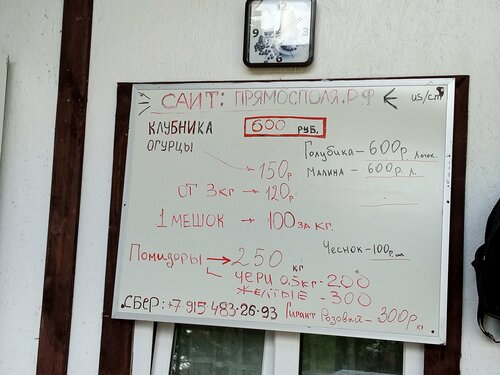 САЙТ: ПРЯМОСПОЛЯ.РФ
КЛУБНИКА 600 РУБ.
ОГУРЦЫ
150р
ОТ 3 кг → 120р
1 МЕШОК → 100 ЗА КГ.
Голубика - 600р лоток.
Малина - 600р. л.
Чеснок - 100р. шт.
Помидоры → 250 кг
ЧЕРИ 0.5 кг - 200
ЖЕЛТЫЕ - 300
Гигант Розовый - 300р кг
СБЕР: +7 915-483-26-93